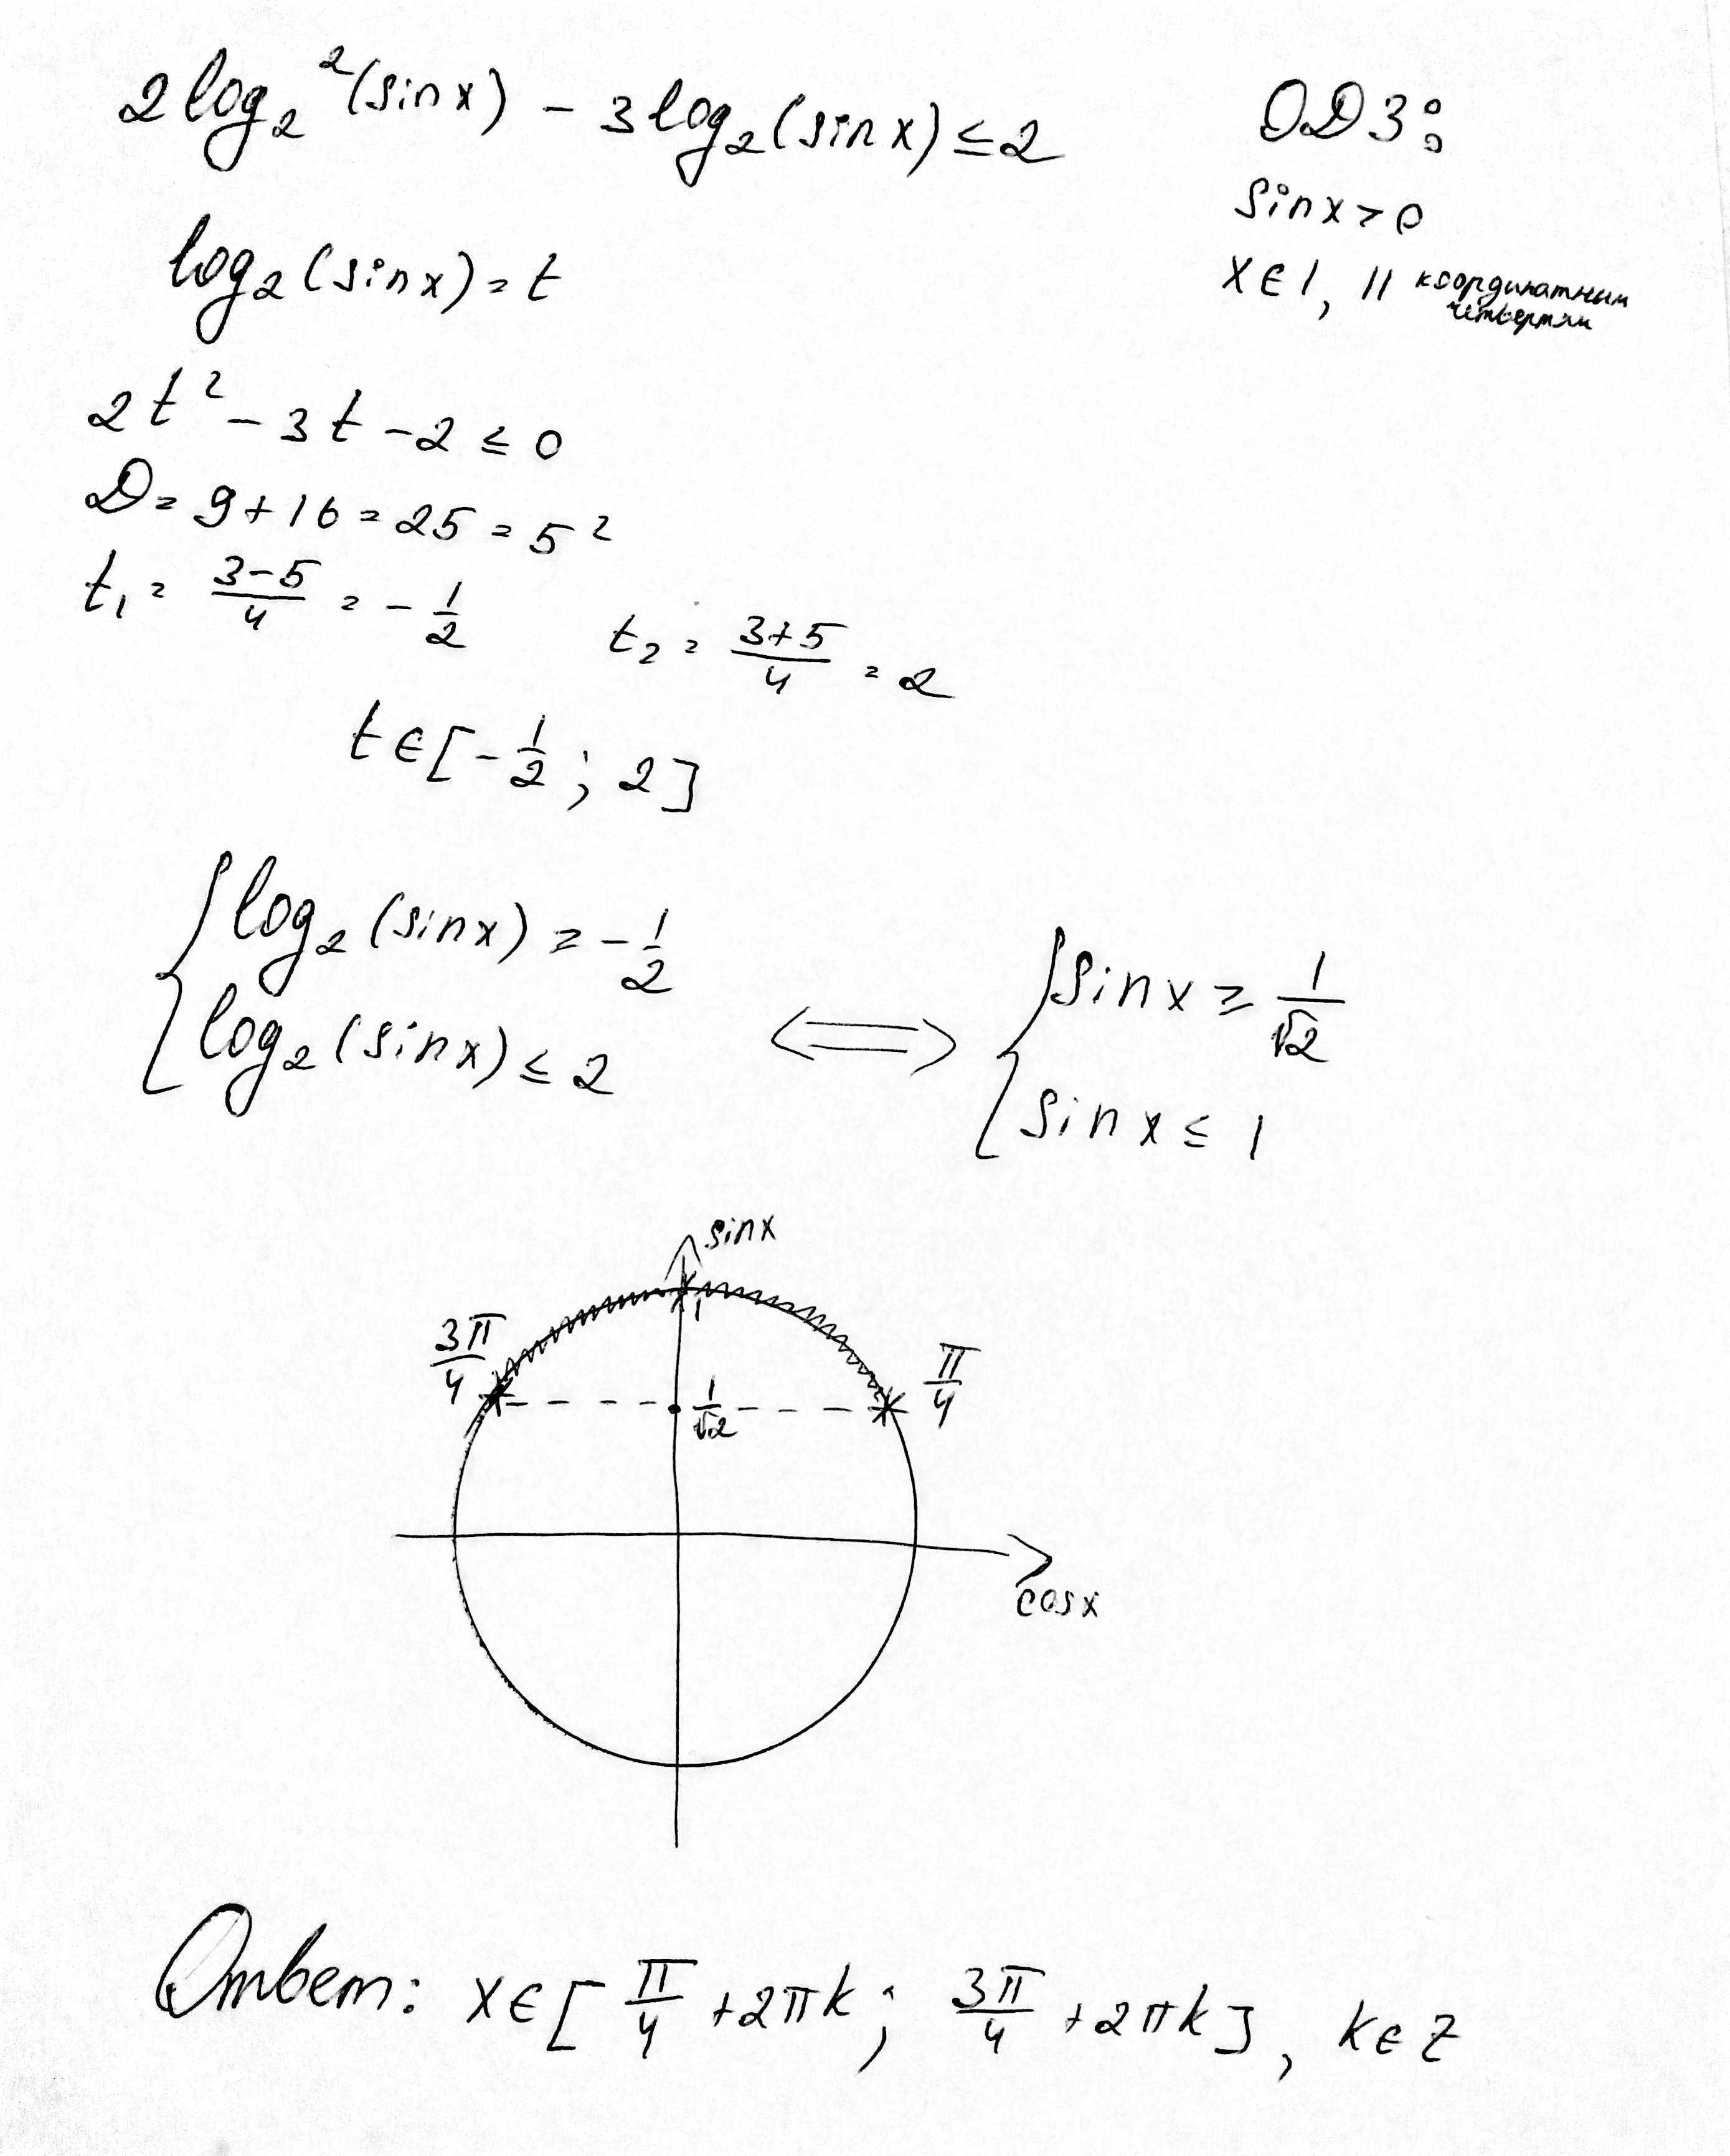 2log₂²(sinx) - 3log₂(sinx) ≤ 2
ОДЗ:
sinx > 0
x ∈ I, II координатным
четвертям
log₂(sinx) = t
2t² - 3t - 2 ≤ 0
D = 9 + 16 = 25 = 5²
t₁ = (3-5)/4 = -1/2   t₂ = (3+5)/4 = 2
t ∈ [-1/2 ; 2]
{ log₂(sinx) ≥ -1/2
{ log₂(sinx) ≤ 2
⟺
{ sinx ≥ 1/√2
{ sinx ≤ 1
sinx
1
3π/4
1/√2
π/4
cosx
Ответ: x ∈ [π/4 + 2πk ; 3π/4 + 2πk], k ∈ Z